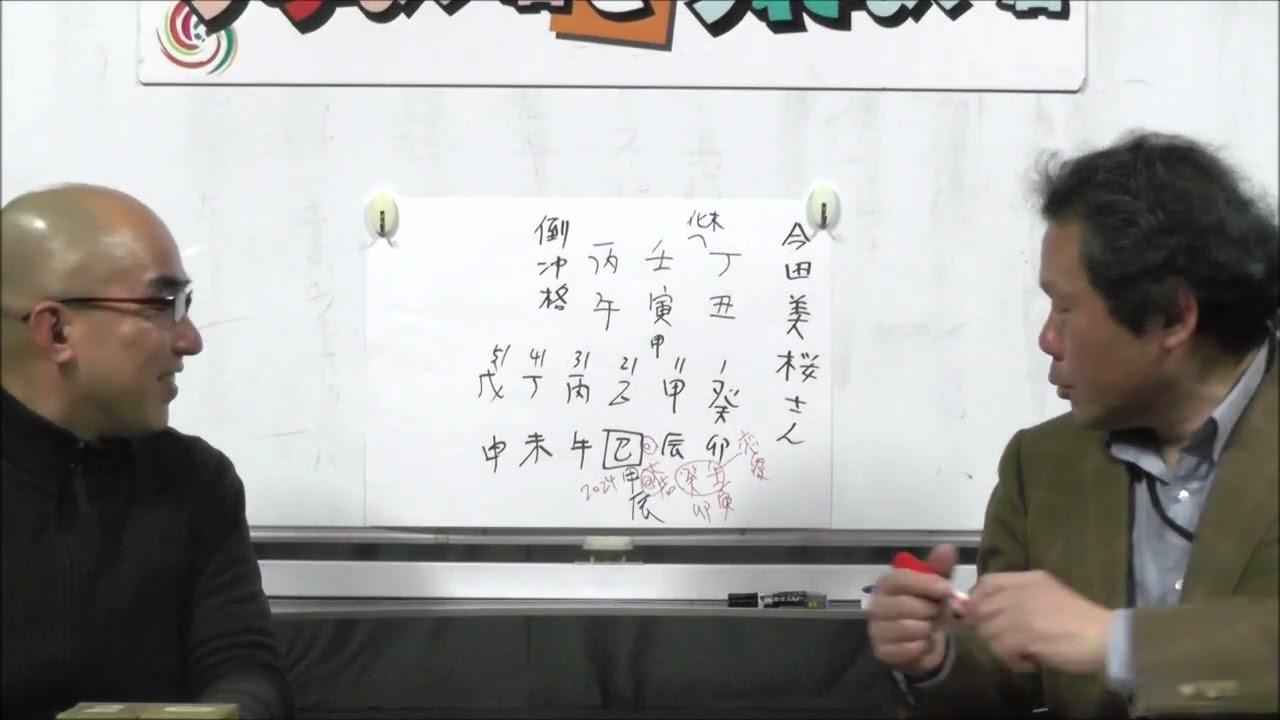 今田美桜さん
化木
丁 壬 丙 倒冲格
丑 寅 午
甲
1 11 21 31 41 51
癸 甲 乙 丙 丁 戊
卯 辰 巳 午 未 申
恋愛
癸 丑
卯 寅
2024 甲
辰